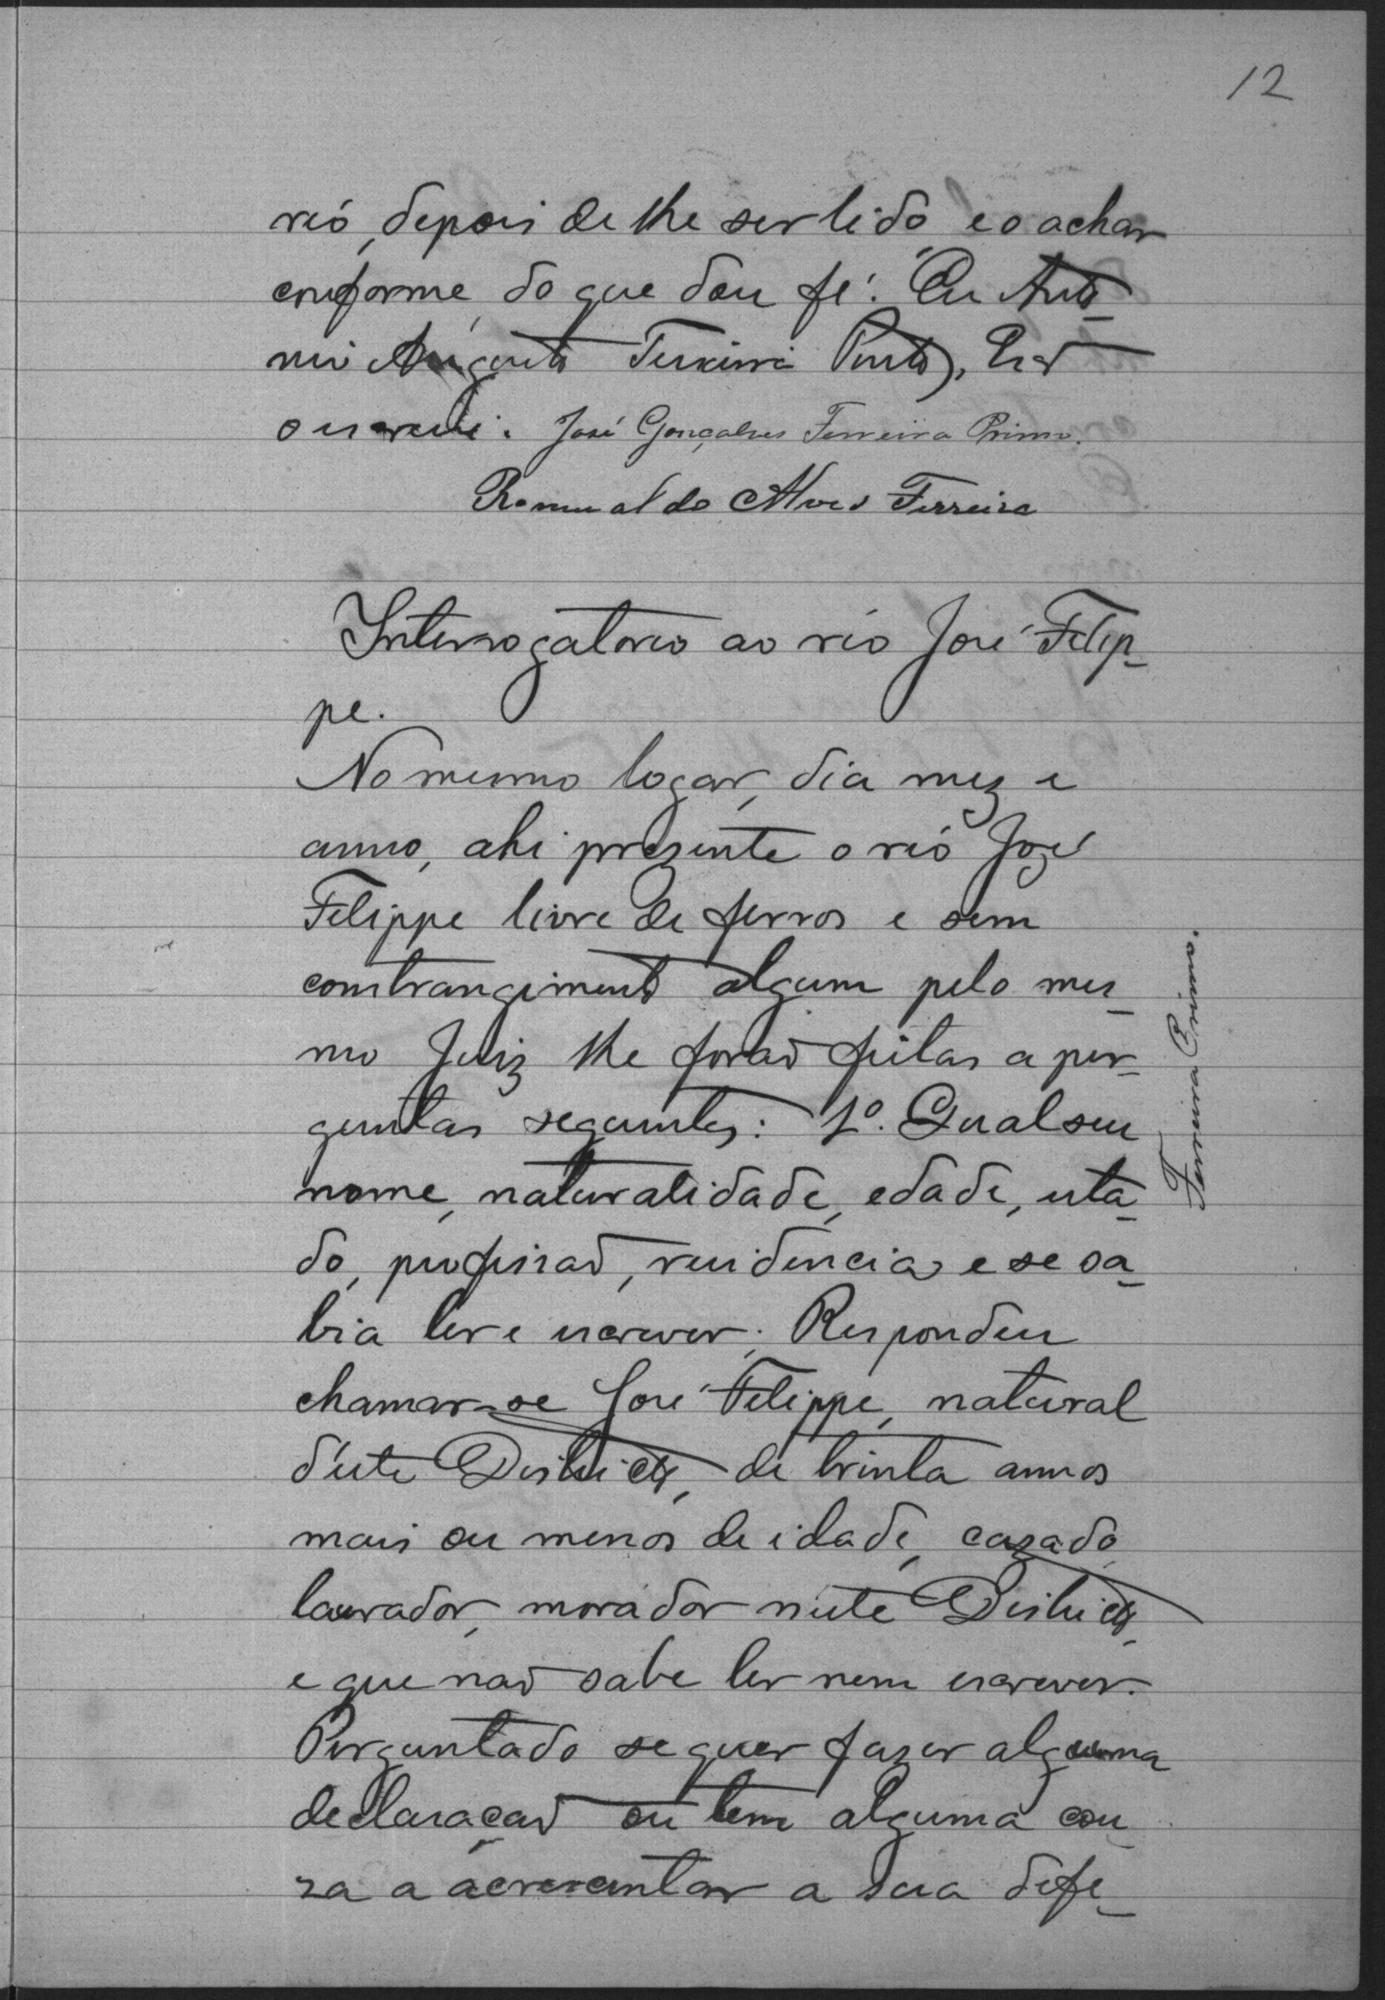 12
reó, depois de lhe ser lido, e o achar
conforme, do que dou fé. Eu Anto-
nio Augusto Teixeira Pinto, Esc
o escrevi. José Gonçalves Ferreira Primo.
Romualdo Alves Ferreira
Interrogatorio ao réo José Felip-
pe.
No mesmo logar, dia mez e
anno, ahi prezente o reó Jozé
Felippe livre de ferros e sem
constrangimento algum pelo mes-
mo Juiz lhe forão feitas a per-
guntas seguintes: 1º. Qual seu
nome, naturalidade, edade, esta-
do, profissão, residencia e se sa-
bia ler e escrever. Respondeu
chamar-se José Felippe, natural
d'este Districto, de trinta annos
mais ou menos de idade, cazado,
lavrador, morador n'este Districto,
e que não sabe ler nem escrever.
Perguntado se quer fazer alguma
declaração ou tem alguma cou-
za a acrescentar a sua defe-
Ferreira Primo.